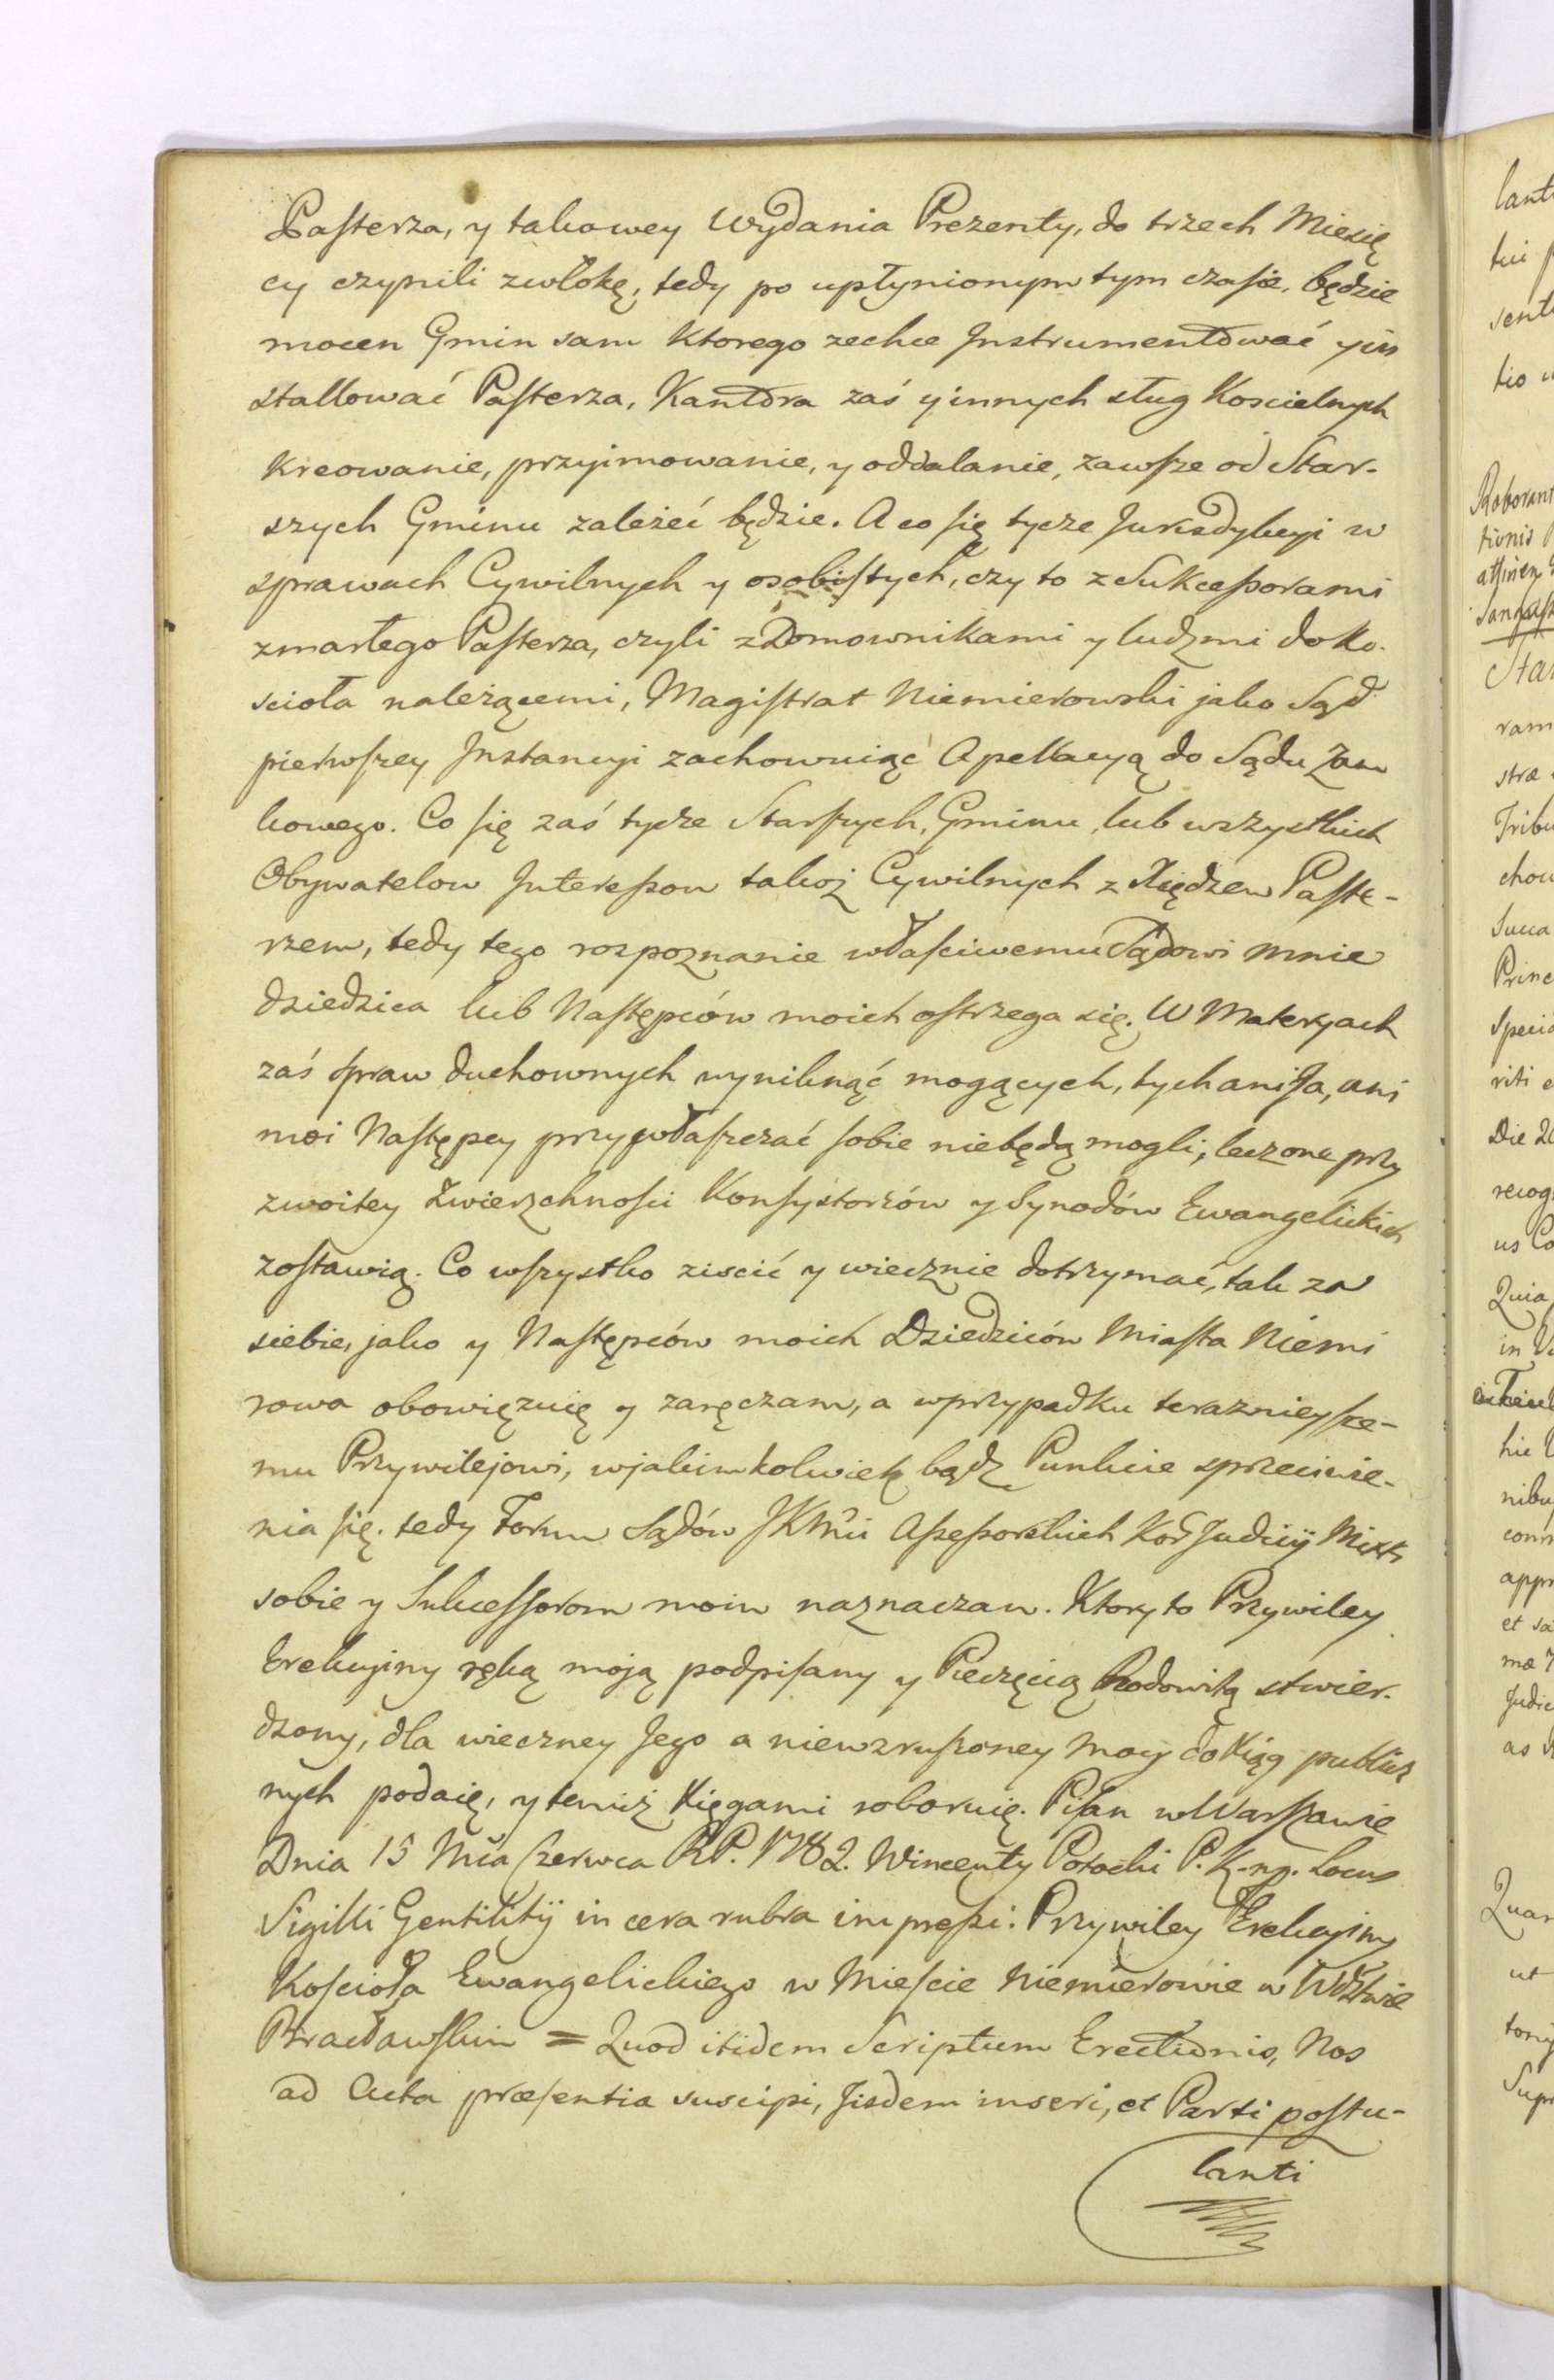 Pasterza, y takowey Wydania Prezenty, do trzech Miesię
cy czynili zwłokę, tedy po upłynionym tym czasie, będzie
mocen Gmin sam Ktorego zechce Instrumentować y in
stallować Pasterza, Kantora zaś y innych sług Koscielnych
Kreowanie, przyimowanie, y oddalanie, zawsze od Star-
szych Gminu zależeć będzie. A co się tycze Jurisdykcyi w
sprawach Cywilnych y osobistych, czy to z Sukcessorami
zmarłego Pasterza, czyli z Domownikami y ludzmi do Ko-
scioła należącemi, Magistrat Niemierowski jako Sąd
pierwszey Instancyi zachowuiąc Apellacyą do Sądu Zam
kowego. Co się zaś tycze Starszych, Gminu, lub wszystkich
Obywatelow Interessow takoż Cywilnych z Xiędzem Paste-
rzem, tedy tego rozpoznanie właściwemu Sądowi mnie
dziedzica lub Następców moich ostrzega się. W Materyach
zaś spraw duchownych wyniknąć mogących, tych ani Ja, ani
moi Następcy przywłaszczać sobie niebędą mogli, lecz one przy
zwoitey Zwierzchności Konsystorzów y Synodów Ewangelickich
zostawią. Co wszystko ziscić y wiecznie dotrzymać, tak za
siebie, jako y Następców moich Dziedziców Miasta Niemi
rowa obowięzuię y zaręczam, a wprzypadku teraznieysze-
mu Przywilejowi, wjakimkolwiek bądz Punkcie sprzeciwie-
nia się. tedy Forum Sądów JKMci Assessorskich Kor Judicij Mixti
sobie y Sukcessorom moim naznaczam. Ktory to Przywiley
Erekcyiny ręką moją podpisany y Pieczęcią Rodowitą stwier-
dzony, dla wieczney Jego a niewzruszoney mocy do Xiąg publicz
nych podaię, y temiż Xięgami roboruię. Pisan w Warszawie
Dnia 15 Mca Czerwca R.P. 1782. Wincenty Potocki P.K. mp. Locus
Sigilli Gentilitij in cera rubra impressi. Przywiley Erekcyiny
Kościoła Ewangelickiego w Mieście Niemierowie w Wdztwie
Bracławskim = Quod itidem Scriptum Erectionis, Nos
ad Acta præsentia suscipi, Jisdem inseri, et Parti postu-
lanti